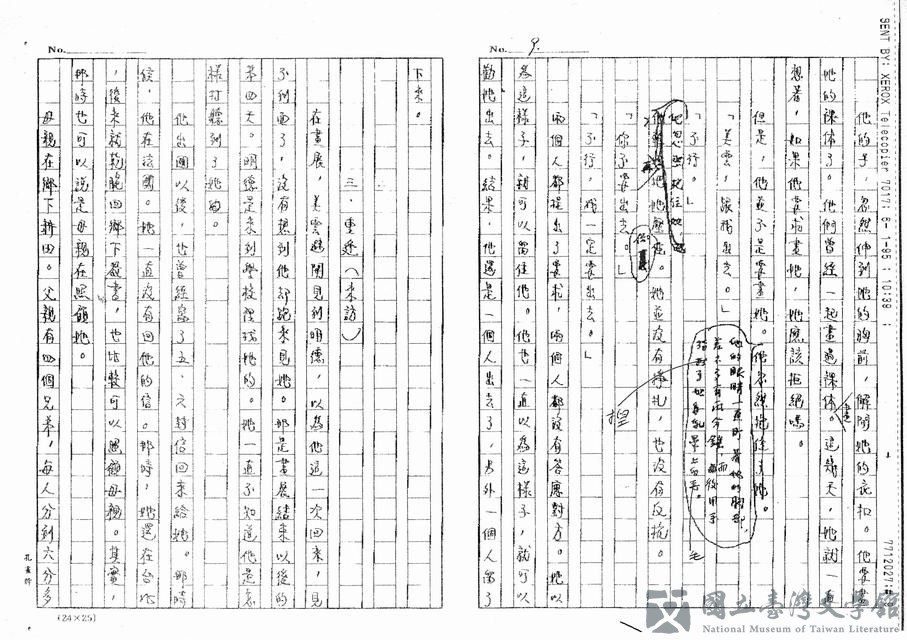 SENT BY: XEROX Telecopier 7017; 8- 1-95 ; 10:39 ;
No. 9.
他的手，忽然伸到她的胸前，解開她的衣扣。他要畫
她的裸體了。他們曾經一起畫過裸體。這幾天，她就一直
想著，如果他要求畫她，她應該拒絕嗎。
但是，他並不是要畫她。他忽然抱住了她。
他的眼睛一直盯著她的胸部，
差不多有兩分鐘，而後用手
「美雲，跟我出去。」
「不行。」
她並沒有掙扎，也沒有反抗。
「你不要出去。」
「不行，我一定要出去。」
兩個人都提出了要求，兩個人都沒有答應對方。她以
為這樣子，就可以留住他。他也一直以為這樣子，就可以
勸她出去。結果，他還是一個人出去了，另外一個人留了
No.
下來。
三、重逢（來訪）
在畫展，美雲遠開見到明德，以為他這一次回來，見
不到面了，沒有想到他卻跑來見她。那是畫展結束以後的
第四天。明德是來到學校裡找她的。她一直不知道他是怎
樣打聽到了她的。
他出國以後，也曾經寫了五、六封信回來給她。那時
候，他在法國。她一直沒有回他的信。那時，她還在台北
，後來就乾脆回鄉下教書，也比較可以照顧母親。其實，
那時也可以說是母親在照顧她。
母親在鄉下耕田。父親有四個兄弟，每人分到六分多
(24×25)
國立臺灣文學館
National Museum of Taiwan Literature